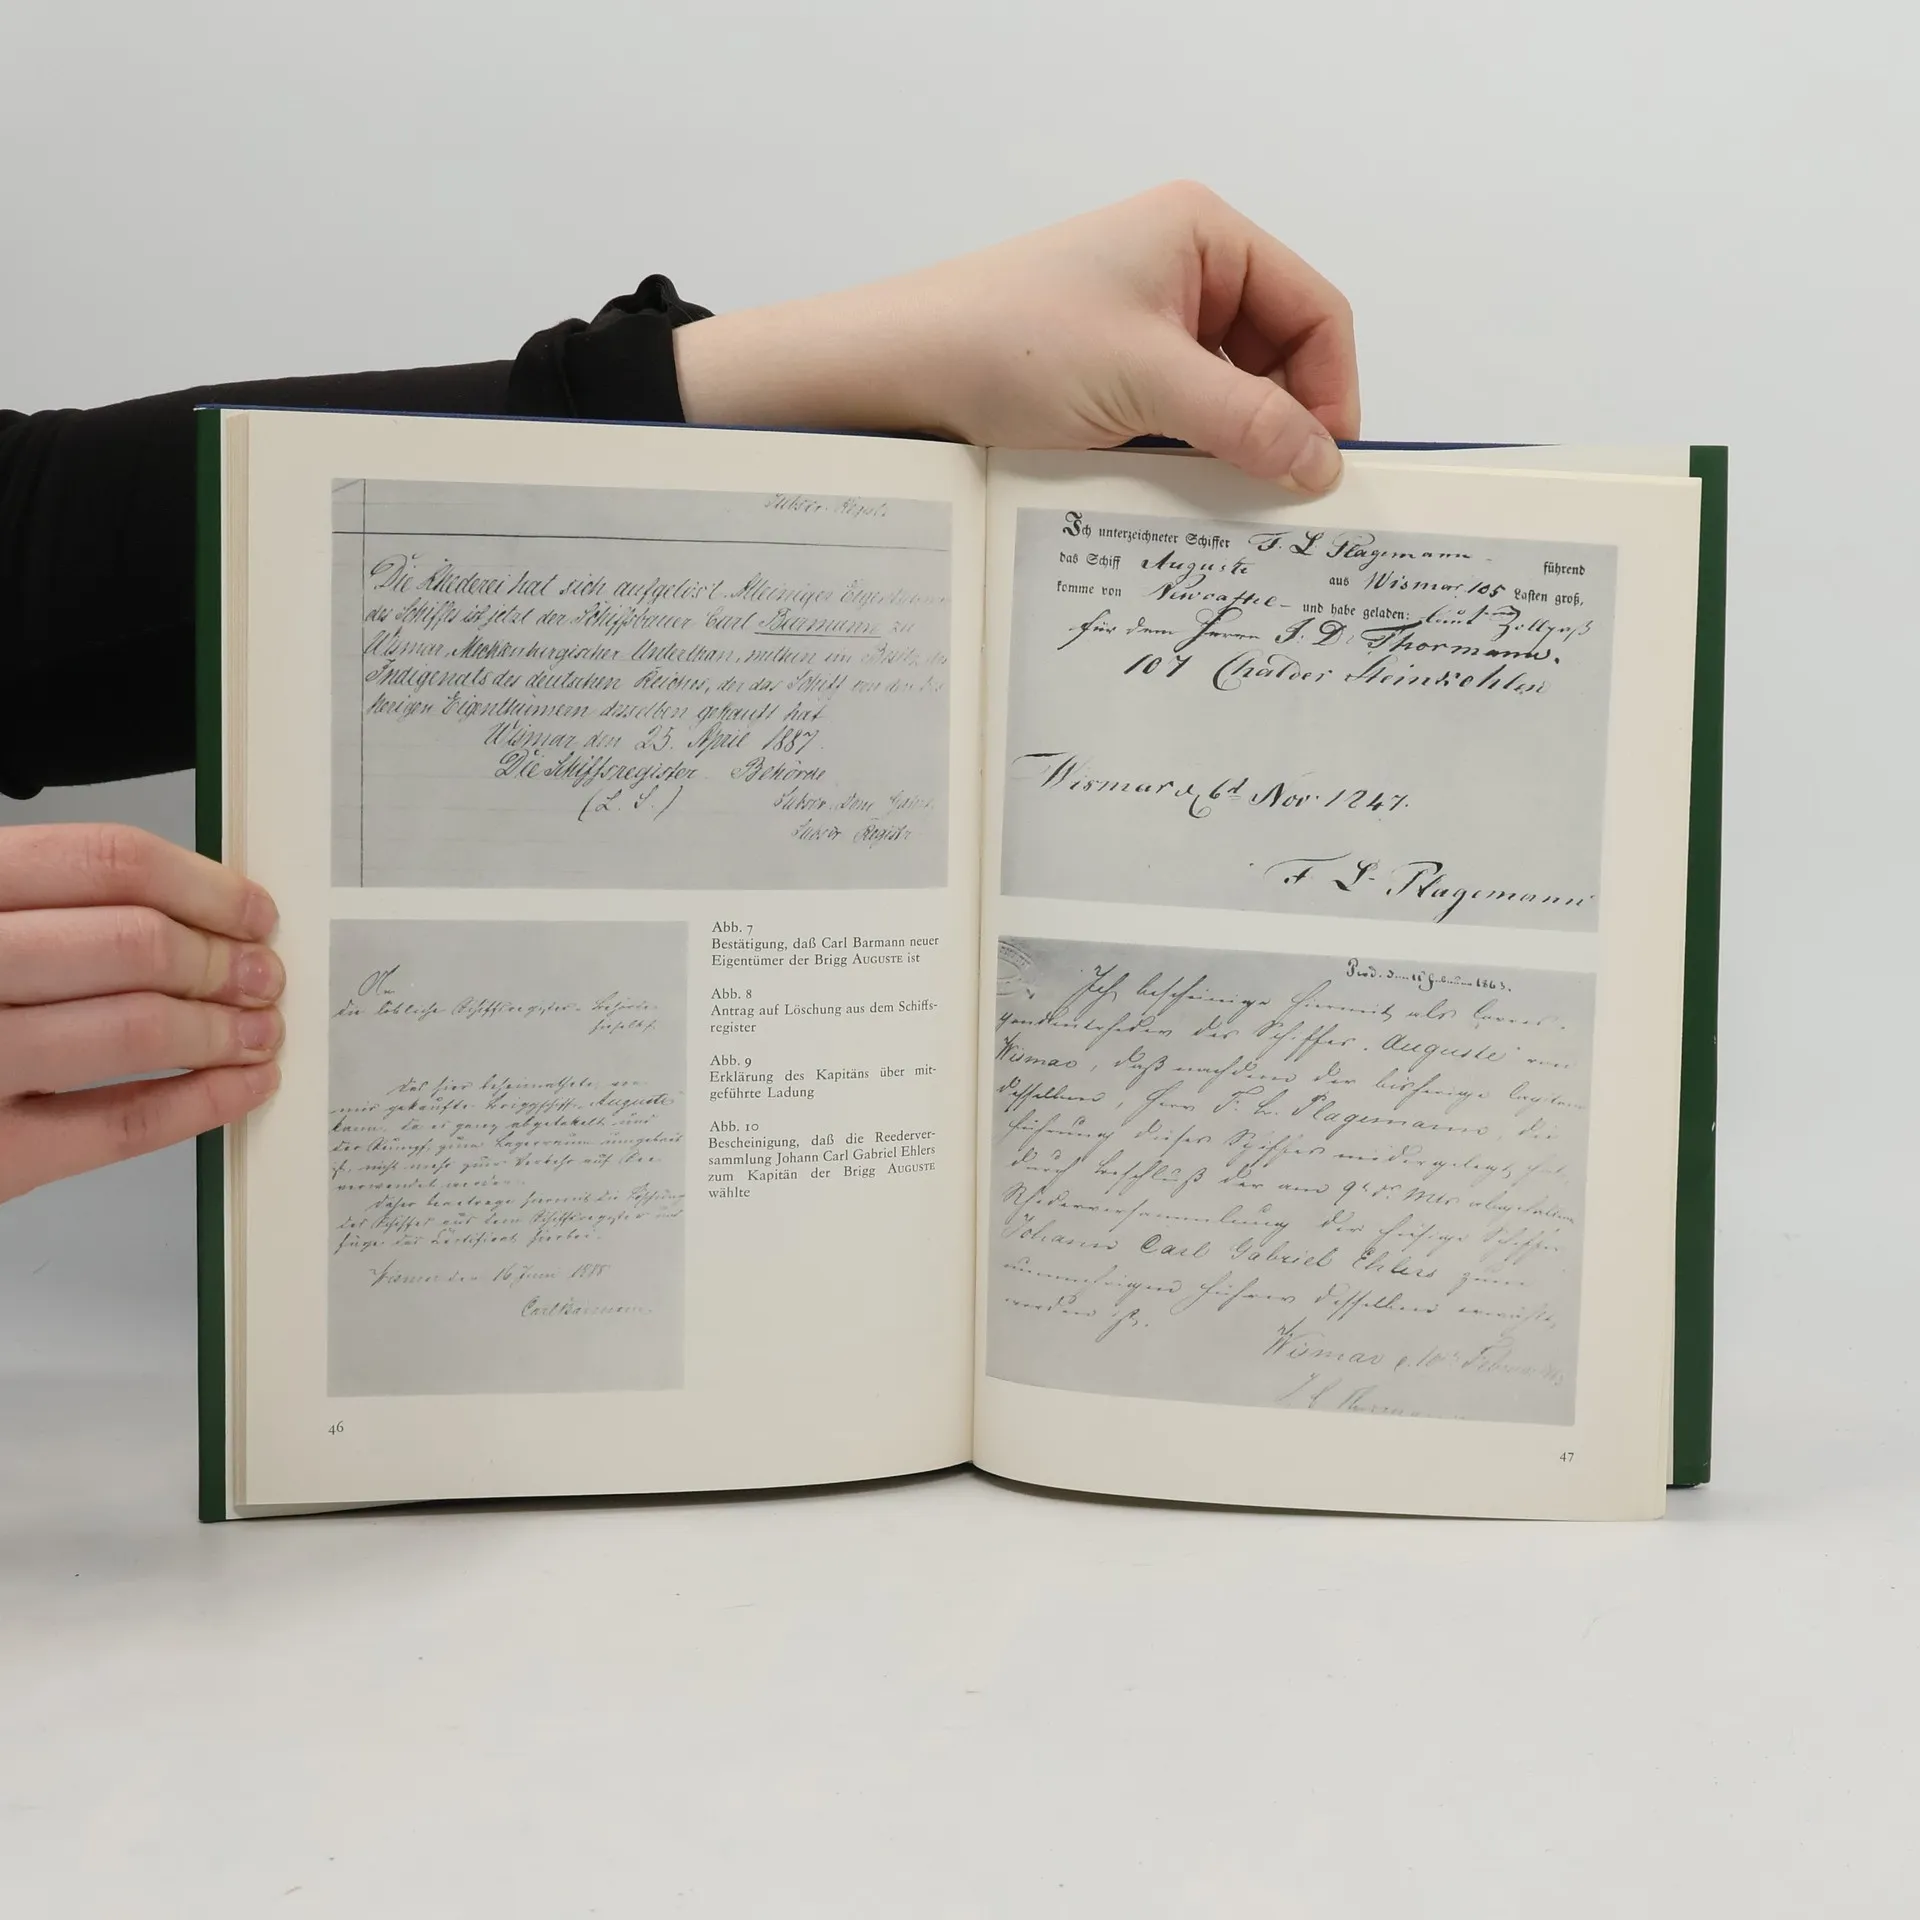 Die Rhederei hat sich aufgelöst. Alleiniger Eigenthümer
des Schiffes ist jetzt der Schiffsbauer Carl Barmann zu
Wismar, Mecklenburgischer Unterthan, mithin im Besitz des
Indigenats des deutschen Reiches, der das Schiff von den bis
herigen Eigenthümern desselben gekauft hat
Wismar den 25. April 1887.
Die Schiffsregister Behörde
(L. S.)
An
die löbliche Schiffsregister-Behörde
hieselbst
Das hier beheimathete, von
mir gekaufte Briggschiff "Auguste"
kann, da es ganz abgetakelt und
der Rumpf zum Lagerraum umgebaut
ist, nicht mehr zum Verkehr auf See
verwendet werden.
Daher beantrage hiermit die Löschung
des Schiffes aus dem Schiffsregister und
füge das Certificat hierbei.
Wismar den 16 Juni 1888
Carl Barmann
Abb. 7
Bestätigung, daß Carl Barmann neuer
Eigentümer der Brigg AUGUSTE ist
Abb. 8
Antrag auf Löschung aus dem Schiffs-
register
Abb. 9
Erklärung des Kapitäns über mit-
geführte Ladung
Abb. 10
Bescheinigung, daß die Reederver-
sammlung Johann Carl Gabriel Ehlers
zum Kapitän der Brigg AUGUSTE
wählte
46
Ich unterzeichneter Schiffer F. L. Plagemann führend
das Schiff Auguste aus Wismar 105 Lasten groß,
komme von Newcastle - und habe geladen: laut Zollpaß
für dem Herrn J. D. Thormann.
107 Chalder Steinkohlen
Wismar d. 6t Nov. 1847.
F. L. Plagemann
Ich bescheinige hiermit als Corres-
pondentrheder des Schiffes "Auguste" von
Wismar, daß nachdem der bisherige Capitain
desselben, Herr F. L. Plagemann, die
Führung dieses Schiffes niedergelegt hat,
durch Beschluß der am 9t ds. Mts abgehaltenen
Rhederversammlung der hiesige Schiffer
Johann Carl Gabriel Ehlers zum
nunmehrigen Führer desselben erwählt
worden ist.
Wismar d. 10t Februar 1863
47